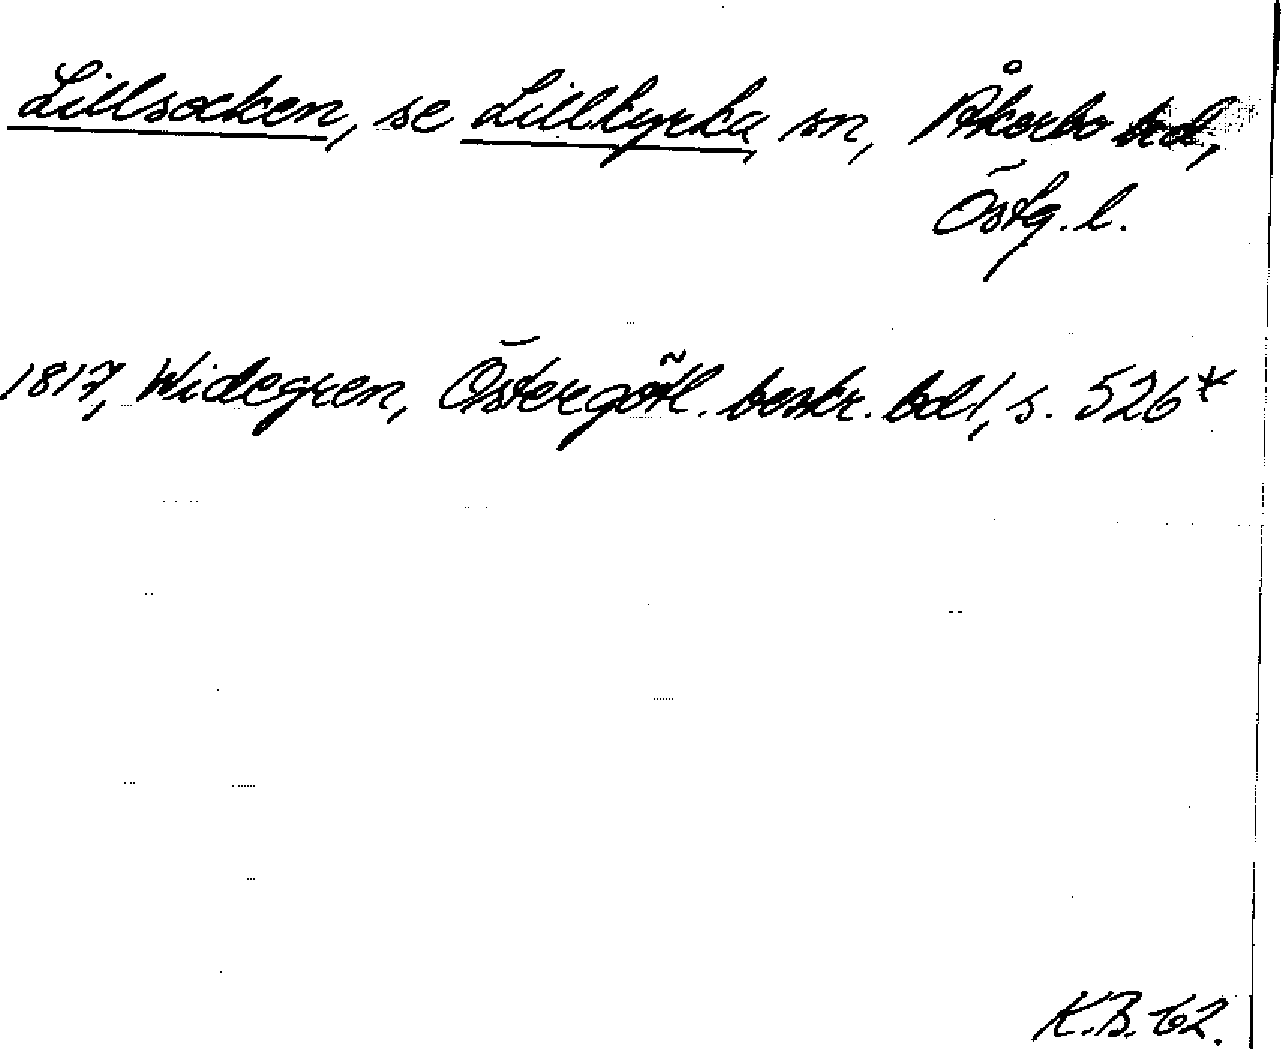 Lillsocken, se Lillkyrka sn, Åkerbo hd,
Östg. l.
1817, Widegren, Östergötl. beskr. bd 1, s. 526*
K.B. 62.